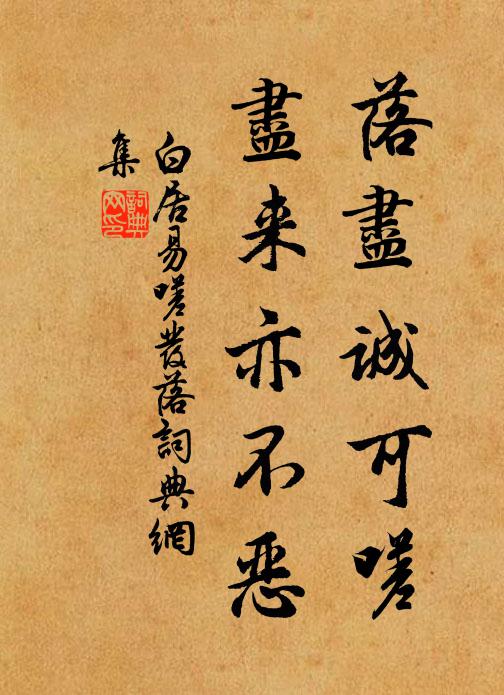 落盡誠可嗟
盡来亦不恶
白居易嗟發落詞典網
集
詞典
网印